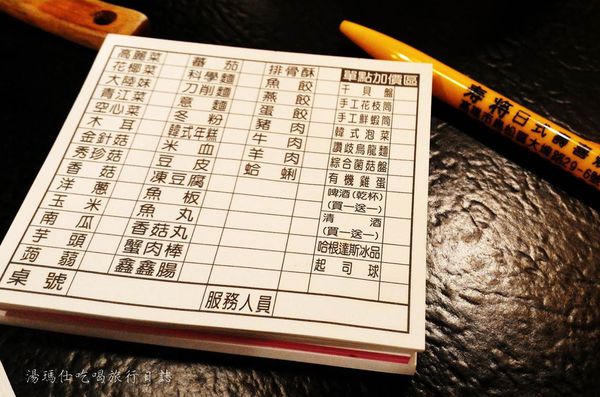 高麗菜 蕃茄 排骨酥 單點加價區
花椰菜 科學麵 魚餃 干貝盤
大陸妹 刀削麵 燕餃 手工花枝筒
青江菜 意麵 蛋餃 手工鮮蝦筒
空心菜 冬粉 豬肉 韓式泡菜
木耳 韓式年糕 牛肉 讚歧烏龍麵
金針菇 米血 羊肉 綜合菌菇盤
秀珍菇 豆皮 蛤蜊 有機雞蛋
香菇 凍豆腐 啤酒(乾杯)
(買一送一)
洋蔥 魚板 清酒
(買一送一)
玉米 魚丸 哈根達斯冰品
南瓜 香菇丸 起司球
芋頭 蟹肉棒
蒟蒻 鑫鑫腸
桌號 服務人員
壽將日式壽喜
湯瑪仕吃喝旅行日誌